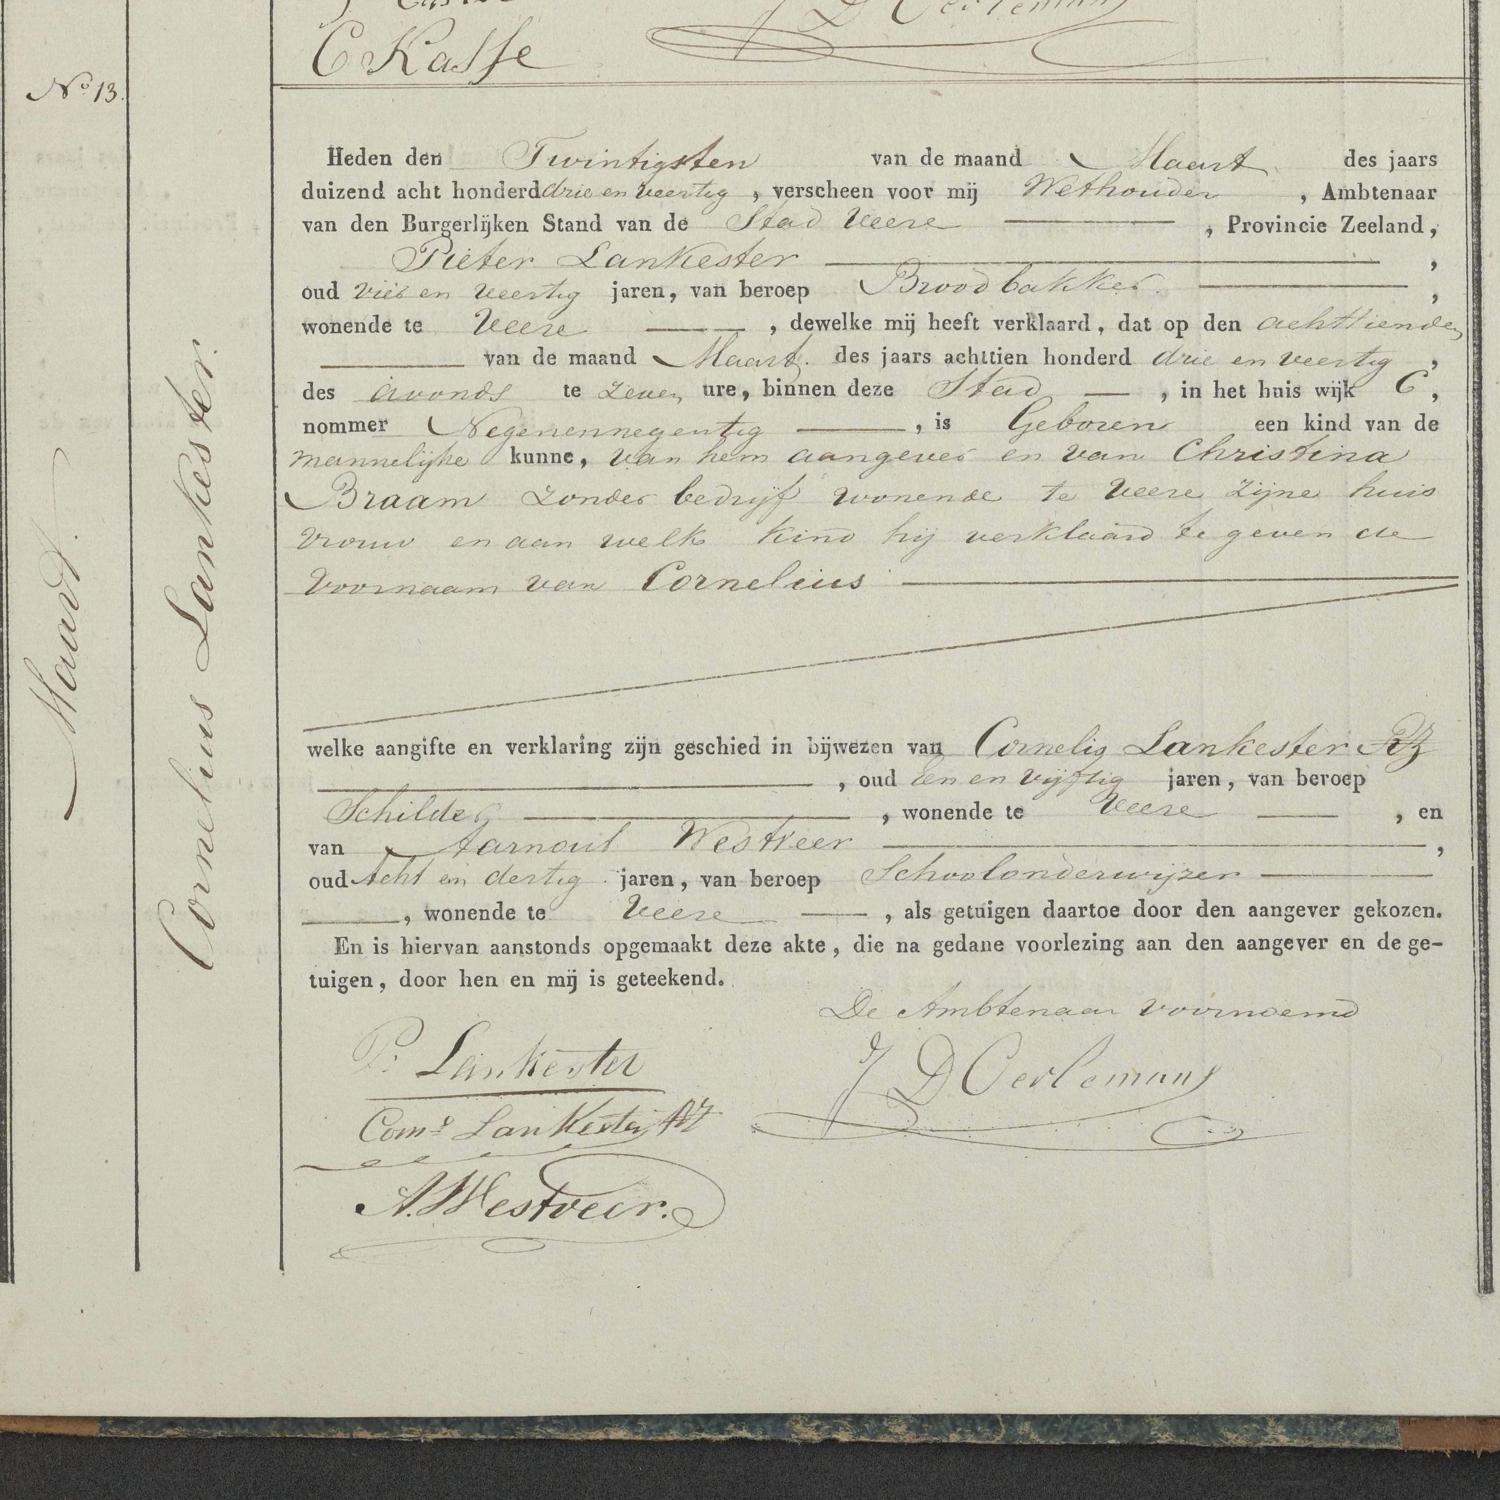 C Kasse
J D Oerlemans
No 13.
Maart.
Cornelius Lankester.
Heden den Twintigsten van de maand Maart des jaars
duizend acht honderd drie en veertig, verscheen voor mij Wethouder, Ambtenaar
van den Burgerlijken Stand van de Stad Veere, Provincie Zeeland,
Pieter Lankester,
oud vier en veertig jaren, van beroep Broodbakker,
wonende te Veere, dewelke mij heeft verklaard, dat op den achttienden
van de maand Maart des jaars achttien honderd drie en veertig,
des avonds te zeven ure, binnen deze Stad, in het huis wijk C,
nommer Negenennegentig, is Geboren een kind van de
mannelijke kunne, van hem aangever en van Christina
Braam zonder bedrijf wonende te Veere zijne huis
vrouw en aan welk kind hij verklaard te geven de
Voornaam van Cornelius
welke aangifte en verklaring zijn geschied in bijwezen van Cornelis Lankester
, oud een en vijftig jaren, van beroep
Schilder, wonende te Veere, en
van Aarnout Westveer,
oud Acht en dertig jaren, van beroep Schoolonderwijzer
, wonende te Veere, als getuigen daartoe door den aangever gekozen.
En is hiervan aanstonds opgemaakt deze akte, die na gedane voorlezing aan den aangever en de ge-
tuigen, door hen en mij is geteekend.
De Ambtenaar voornoemd
P. Lankester
J D Oerlemans
Corns Lankester
A. Westveer.